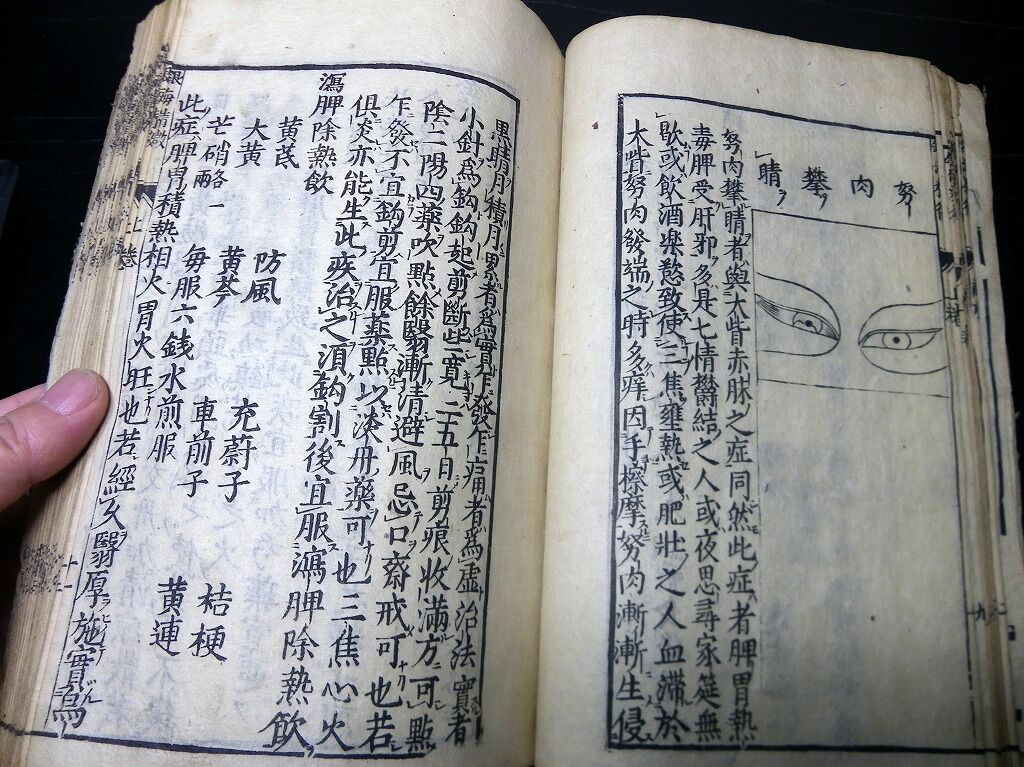 努肉攀睛
努肉攀睛者與大眥赤脉之症同然此症者脾胃熱
毒脾受肝邪多是七情欝結之人或夜思尋家筵無
歇或飲酒樂慾致使三焦壅熱或肥壯之人血滯於
大眥努肉發端之時多痒因手擦摩努肉漸漸生侵
黒睛日積月累者為實乍發乍痛者為虚治法實者
小針為鈎鈎起剪斷些寛二五日剪痕收滿方可點
陰二陽四藥吹點餘翳漸清避風忌口齋戒可也若
乍發不宜鈎剪宜服藥點以淡丹藥可也三焦心火
俱炎亦能生此疾治之須鈎割後宜服瀉脾除熱飲
瀉脾除熱飲
黄茋 防風 充蔚子 桔梗
大黄 黄芩 車前子 黄連
芒硝各一兩 毎服六銭水煎服
此症脾胃積熱相火胃火旺也若經久翳厚施實為
銀海精微 上巻 十一
九